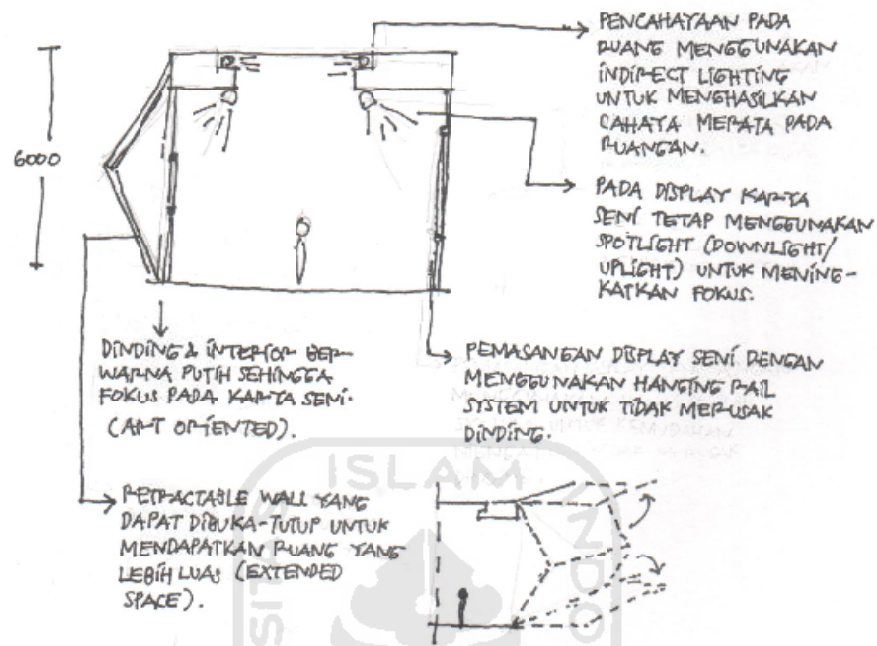 PENCAHAYAAN PADA
RUANG MENGGUNAKAN
INDIRECT LIGHTING
UNTUK MENGHASILKAN
CAHAYA MERATA PADA
RUANGAN.
6000
PADA DISPLAY KARYA
SENI TETAP MENGGUNAKAN
SPOTLIGHT (DOWNLIGHT/
UPLIGHT) UNTUK MENING-
KATKAN FOKUS.
DINDING & INTERIOR BER-
WARNA PUTIH SEHINGGA
FOKUS PADA KARYA SENI.
(ART ORIENTED).
PEMASANGAN DISPLAY SENI DENGAN
MENGGUNAKAN HANGING RAIL
SYSTEM UNTUK TIDAK MERUSAK
DINDING.
RETRACTABLE WALL YANG
DAPAT DIBUKA-TUTUP UNTUK
MENDAPATKAN RUANG YANG
LEBIH LUAS (EXTENDED
SPACE).
ISLAM
SITAS
INDO